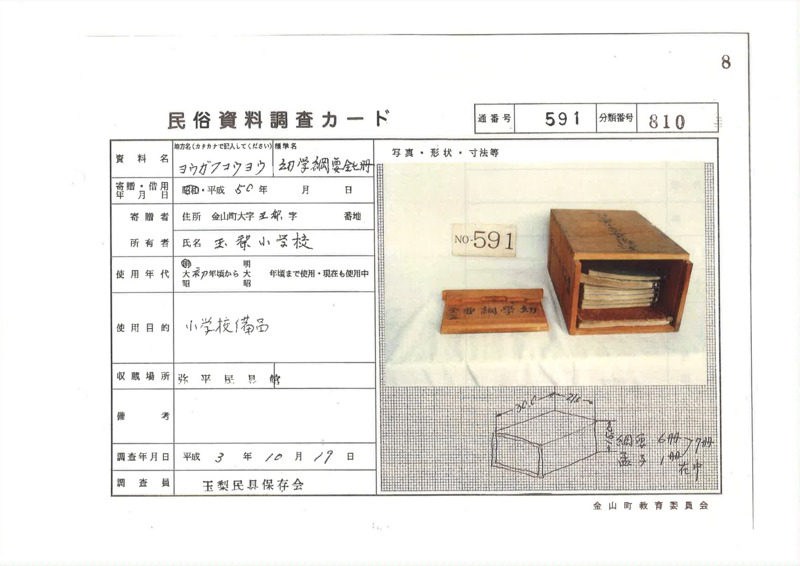 8
民俗資料調査カード
通番号 591 分類番号 810
資料名 地方名(カタカナで記入してください) 標準名
ヨウガクコウヨウ 幼学綱要全七冊
寄贈・借用年月日 昭和・平成 50年 月 日
寄贈者 住所 金山町大字玉梨字 番地
所有者 氏名 玉梨小学校
使用年代 明大昭 初年頃から 明大昭 年頃まで使用・現在も使用中
使用目的 小学校備品
収蔵場所 弥平民具館
備考
調査年月日 平成 3 年 10 月 19 日
調査員 玉梨民具保存会
写真・形状・寸法等
NO-591
幼学綱要
30.0 21.0
綱要 6冊 7冊
孟子 1冊 在中
金山町教育委員会